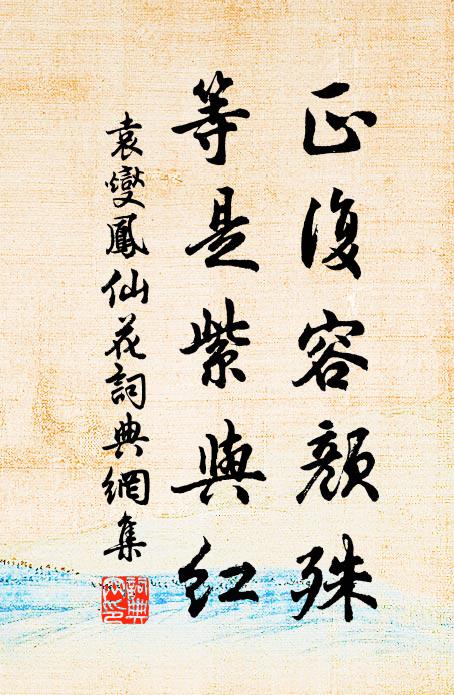 正復容顏殊
等是紫與紅
袁燮鳳仙花詞典網集